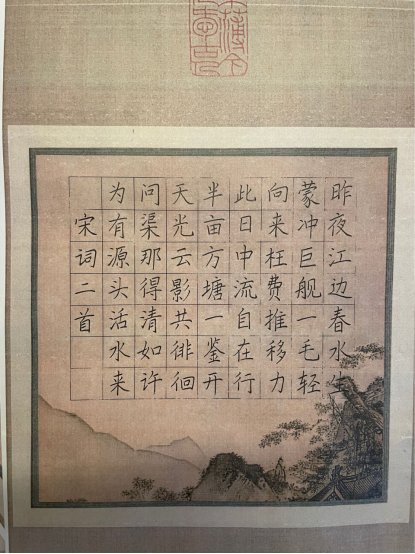 昨夜江边春水生
蒙冲巨舰一毛轻
向来枉费推移力
此日中流自在行
半亩方塘一鉴开
天光云影共徘徊
问渠那得清如许
为有源头活水来
宋词二首